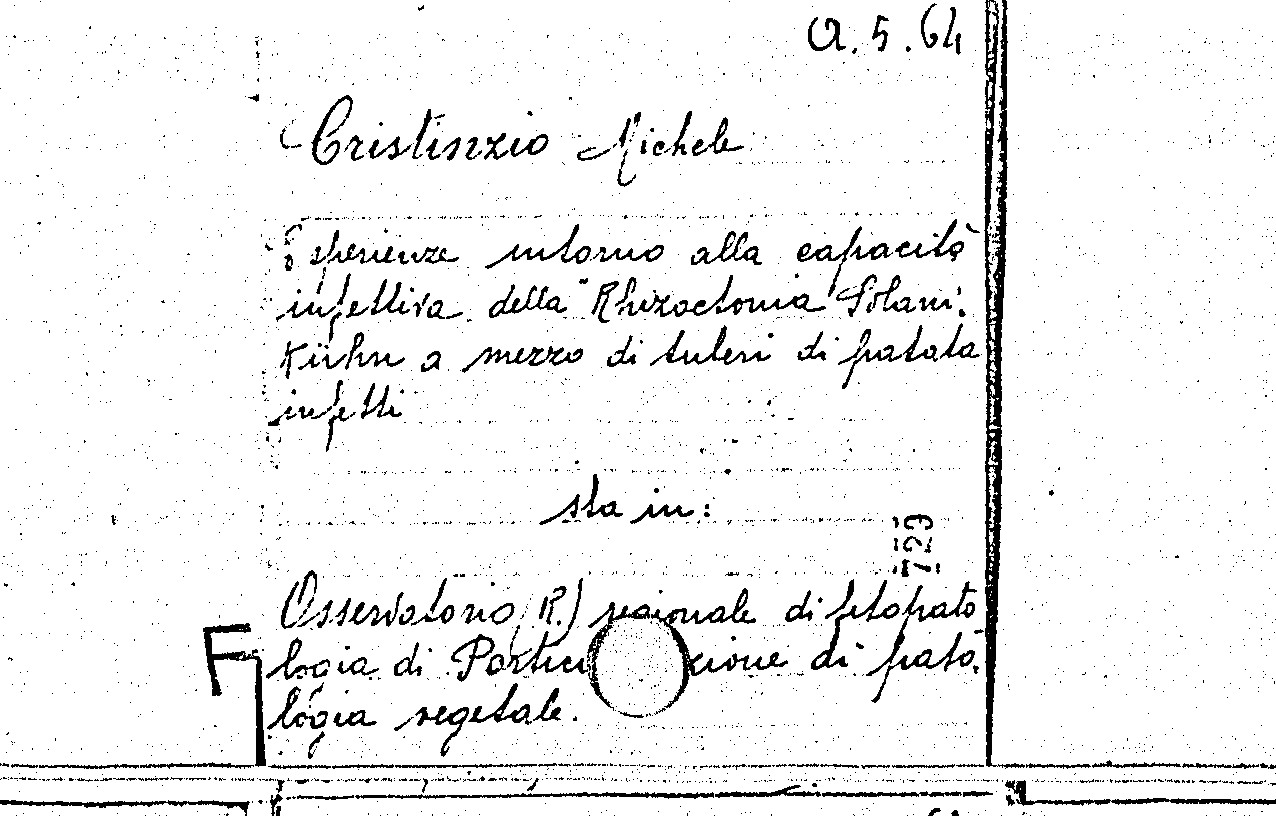 A.5.64
Cristinzio Michele
Esperienze intorno alla capacità
infettiva della "Rhizoctonia Solani"
Kühn a mezzo di tuberi di patata
infetti
sta in:
723
Osservatorio (R.) regionale di fitopato
logia di Portici zione di pato
logia vegetale.
F